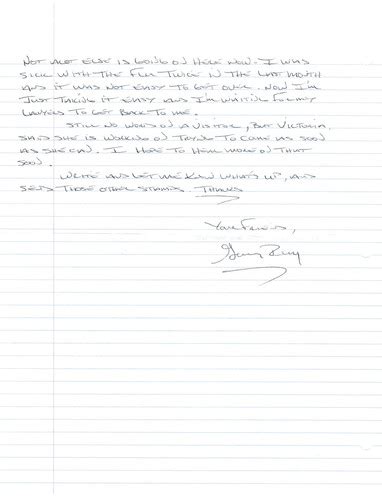 NOT ALOT ELSE IS GOING ON HERE NOW. I WAS
SICK WITH THE FLU TWICE IN THE LAST MONTH
AND IT WAS NOT EASY TO GET OVER. NOW I'M
JUST TAKING IT EASY AND I'M WAITING FOR MY
LAWYERS TO GET BACK TO ME.
STILL NO WORD ON A VISITOR, BUT VICTORIA
SAID SHE IS WORKING ON TRYING TO COME AS SOON
AS SHE CAN. I HOPE TO HEAR MORE ON THAT
SOON.
WRITE AND LET ME KNOW WHAT'S UP, AND
SEND THOSE OTHER STAMPS. THANKS
YOUR FRIEND,